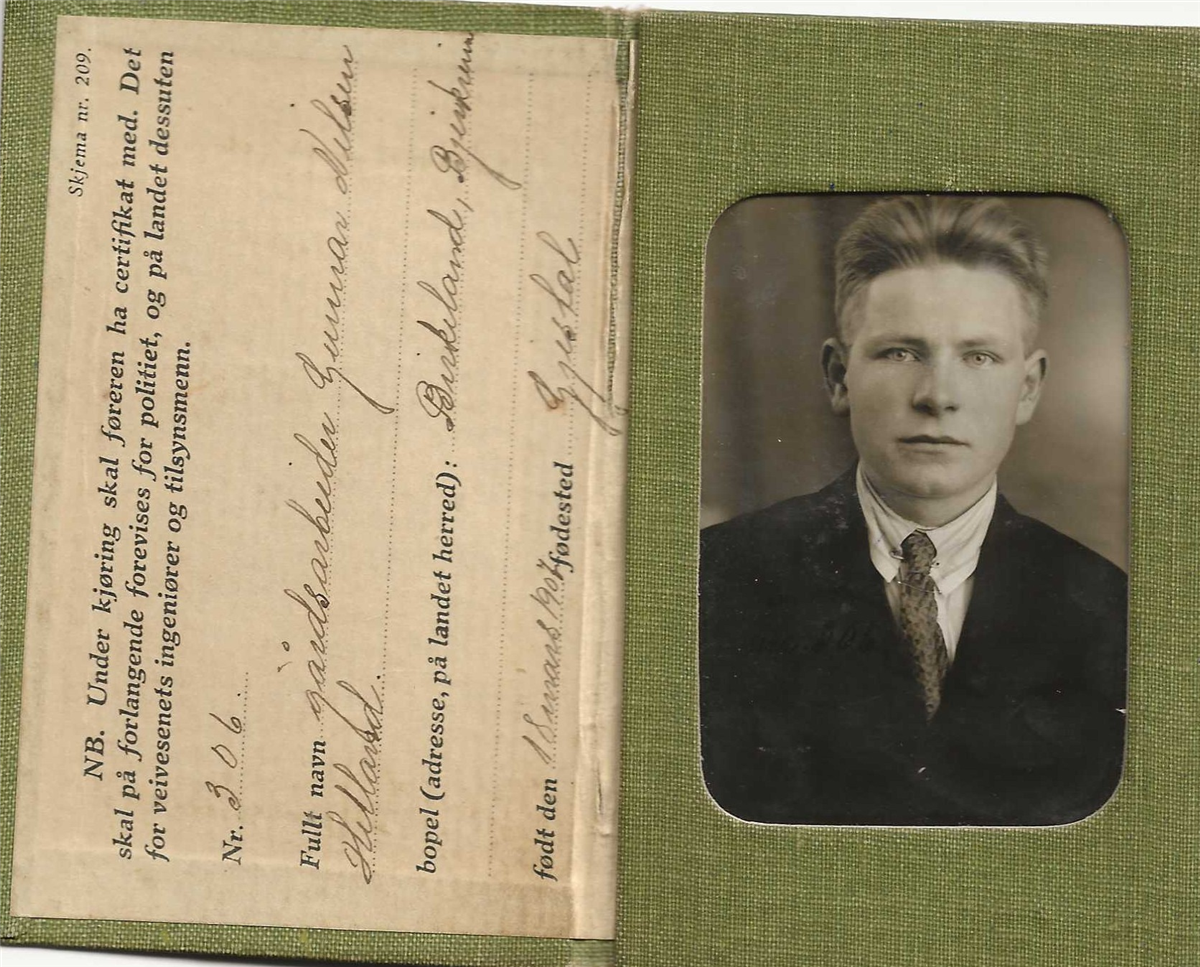 Skjema nr. 209.
NB. Under kjøring skal føreren ha certifikat med. Det
skal på forlangende forevises for politiet, og på landet dessuten
for veivesenets ingeniører og tilsynsmenn.
Nr. 306
Fullt navn gårdsarbeider Gunnar
Helland.
bopel (adresse, på landet herred): Birkeland, Bjerkreim
født den mars 1907 fødested Gjestal